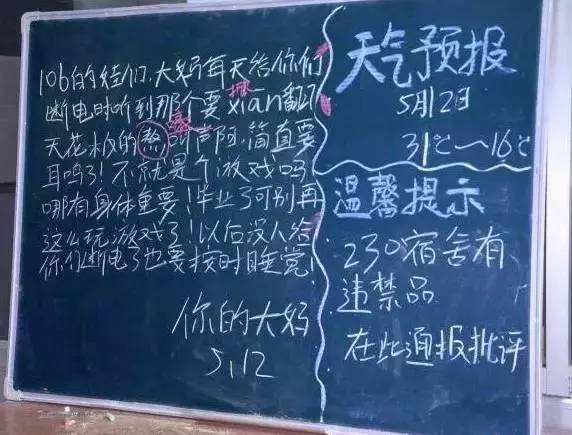 106的娃们,大妈每天给你们
断电时听到那个要xian翻了
掀
天花板的叫声阿.简直要
耳鸣了!不就是个游戏吗!
哪有身体重要!毕业了可别再
这么玩游戏了!以后没人给
你们断电了也要按时睡觉!
你的大妈
5.12
天气预报
5月12日
31℃~16℃
温馨提示
230宿舍有
违禁品
在此通报批评